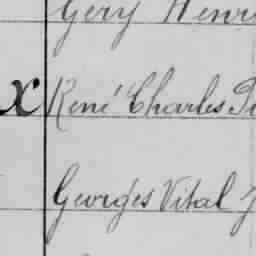 Gery Henri
X René Charles
Georges Vital